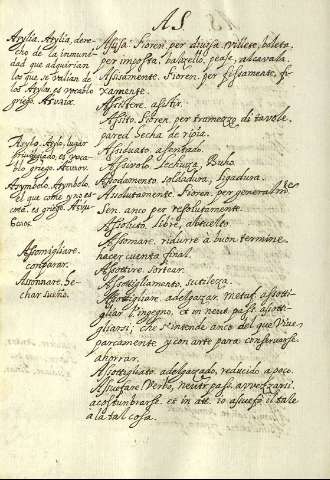 AS
Asylia. Asylia, dere-
cho de la inmuni-
dad que adquirian
los que se valian de
los Asylos, es vocablo
griego.
Asylo. Asylo, lugar
privilegiado, es voca-
blo griego.
Asymbolo. Asymbolo,
el que come y no es-
cota. es griego.
Assomigliare.
comparar.
Assonnare. he-
char sueño.
Assisa. Fioren. per divisa, villete, boleta,
per imposta, balzello, peaje, alcavala.
Assisamente. Fioren. per fissamente, fi-
xamente.
Assistere. asistir.
Assito. Fioren. per tramezzo di tavole,
pared hecha de ripia.
Assituato. assentado.
Assivolo. lechuza. Buho.
Assodamento. soldadura, ligadura.
Assolutamente. Fioren. per general.
Sen. anco per resolutamente.
Assoluto. libre, absuelto.
Assomare. ridurre à buon termine
hacer cuenta final.
Assortire. sortear.
Assottigliamento. sutileza.
Assottigliare. adelgazar. metaf. assotti-
gliar l'ingegno. et in neut. pass. assotti-
gliarsi; che s'intende anco del que Vive
parcamente y con arte para conservarse.
ahorrar.
Assottigliato. adelgazado, reducido a poco.
Assuefare. Verbo, neutr. pass. avvezzarsi.
acostumbrarse. et in att. io assuefo il tale
à la tal cosa.